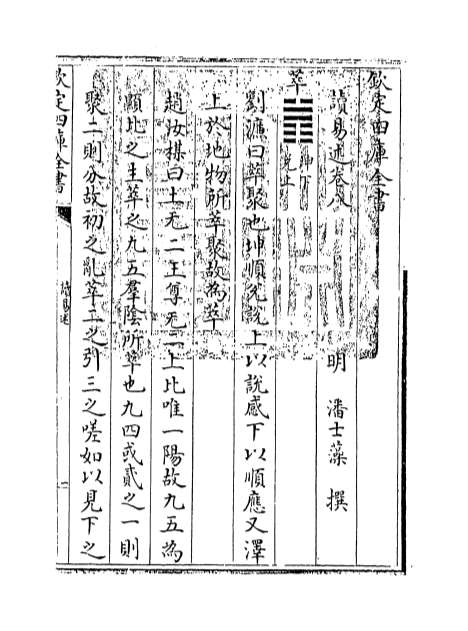 欽定四庫全書
讀易述卷八
明 潘士藻 撰
萃
坤下
兌上
劉濂曰萃聚也坤順兌說上以說感下以順應又澤
上於地物所萃聚故為萃
趙汝楳曰土无二王尊无二上比唯一陽故九五為
顯比之主萃之九五羣陰所萃也九四或貳之一則
聚二則分故初之亂萃二之引三之嗟如以見下之
欽定四庫全書
讀易述